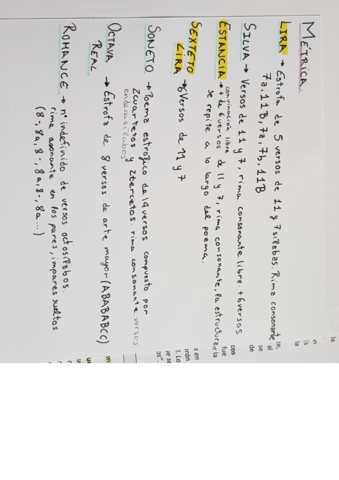 MÉTRICA
LIRA → Estrofa de 5 versos de 11 y 7 sílabas. Rima consonante
7a, 11B, 7a, 7b, 11B
SILVA → Versos de 11 y 7, rima consonante libre +6versos
combinación libre
ESTANCIA → + de 6 versos de 11 y 7, rima consonante, la estructura
se repite a lo largo del poema.
SEXTETO LIRA → 6 Versos de 11 y 7
SONETO → Poema estrófico de 14 versos compuesto por
2cuartetos y 2tercetos rima consonante versos
endecasílabos
OCTAVA REAL → Estrofa de 8 versos de arte mayor (ABABABCC)
ROMANCE → nº indefinido de versos octosílabos
rima asonante en los pares, impares sueltos
(8-, 8a, 8-, 8a, 8-, 8a...)